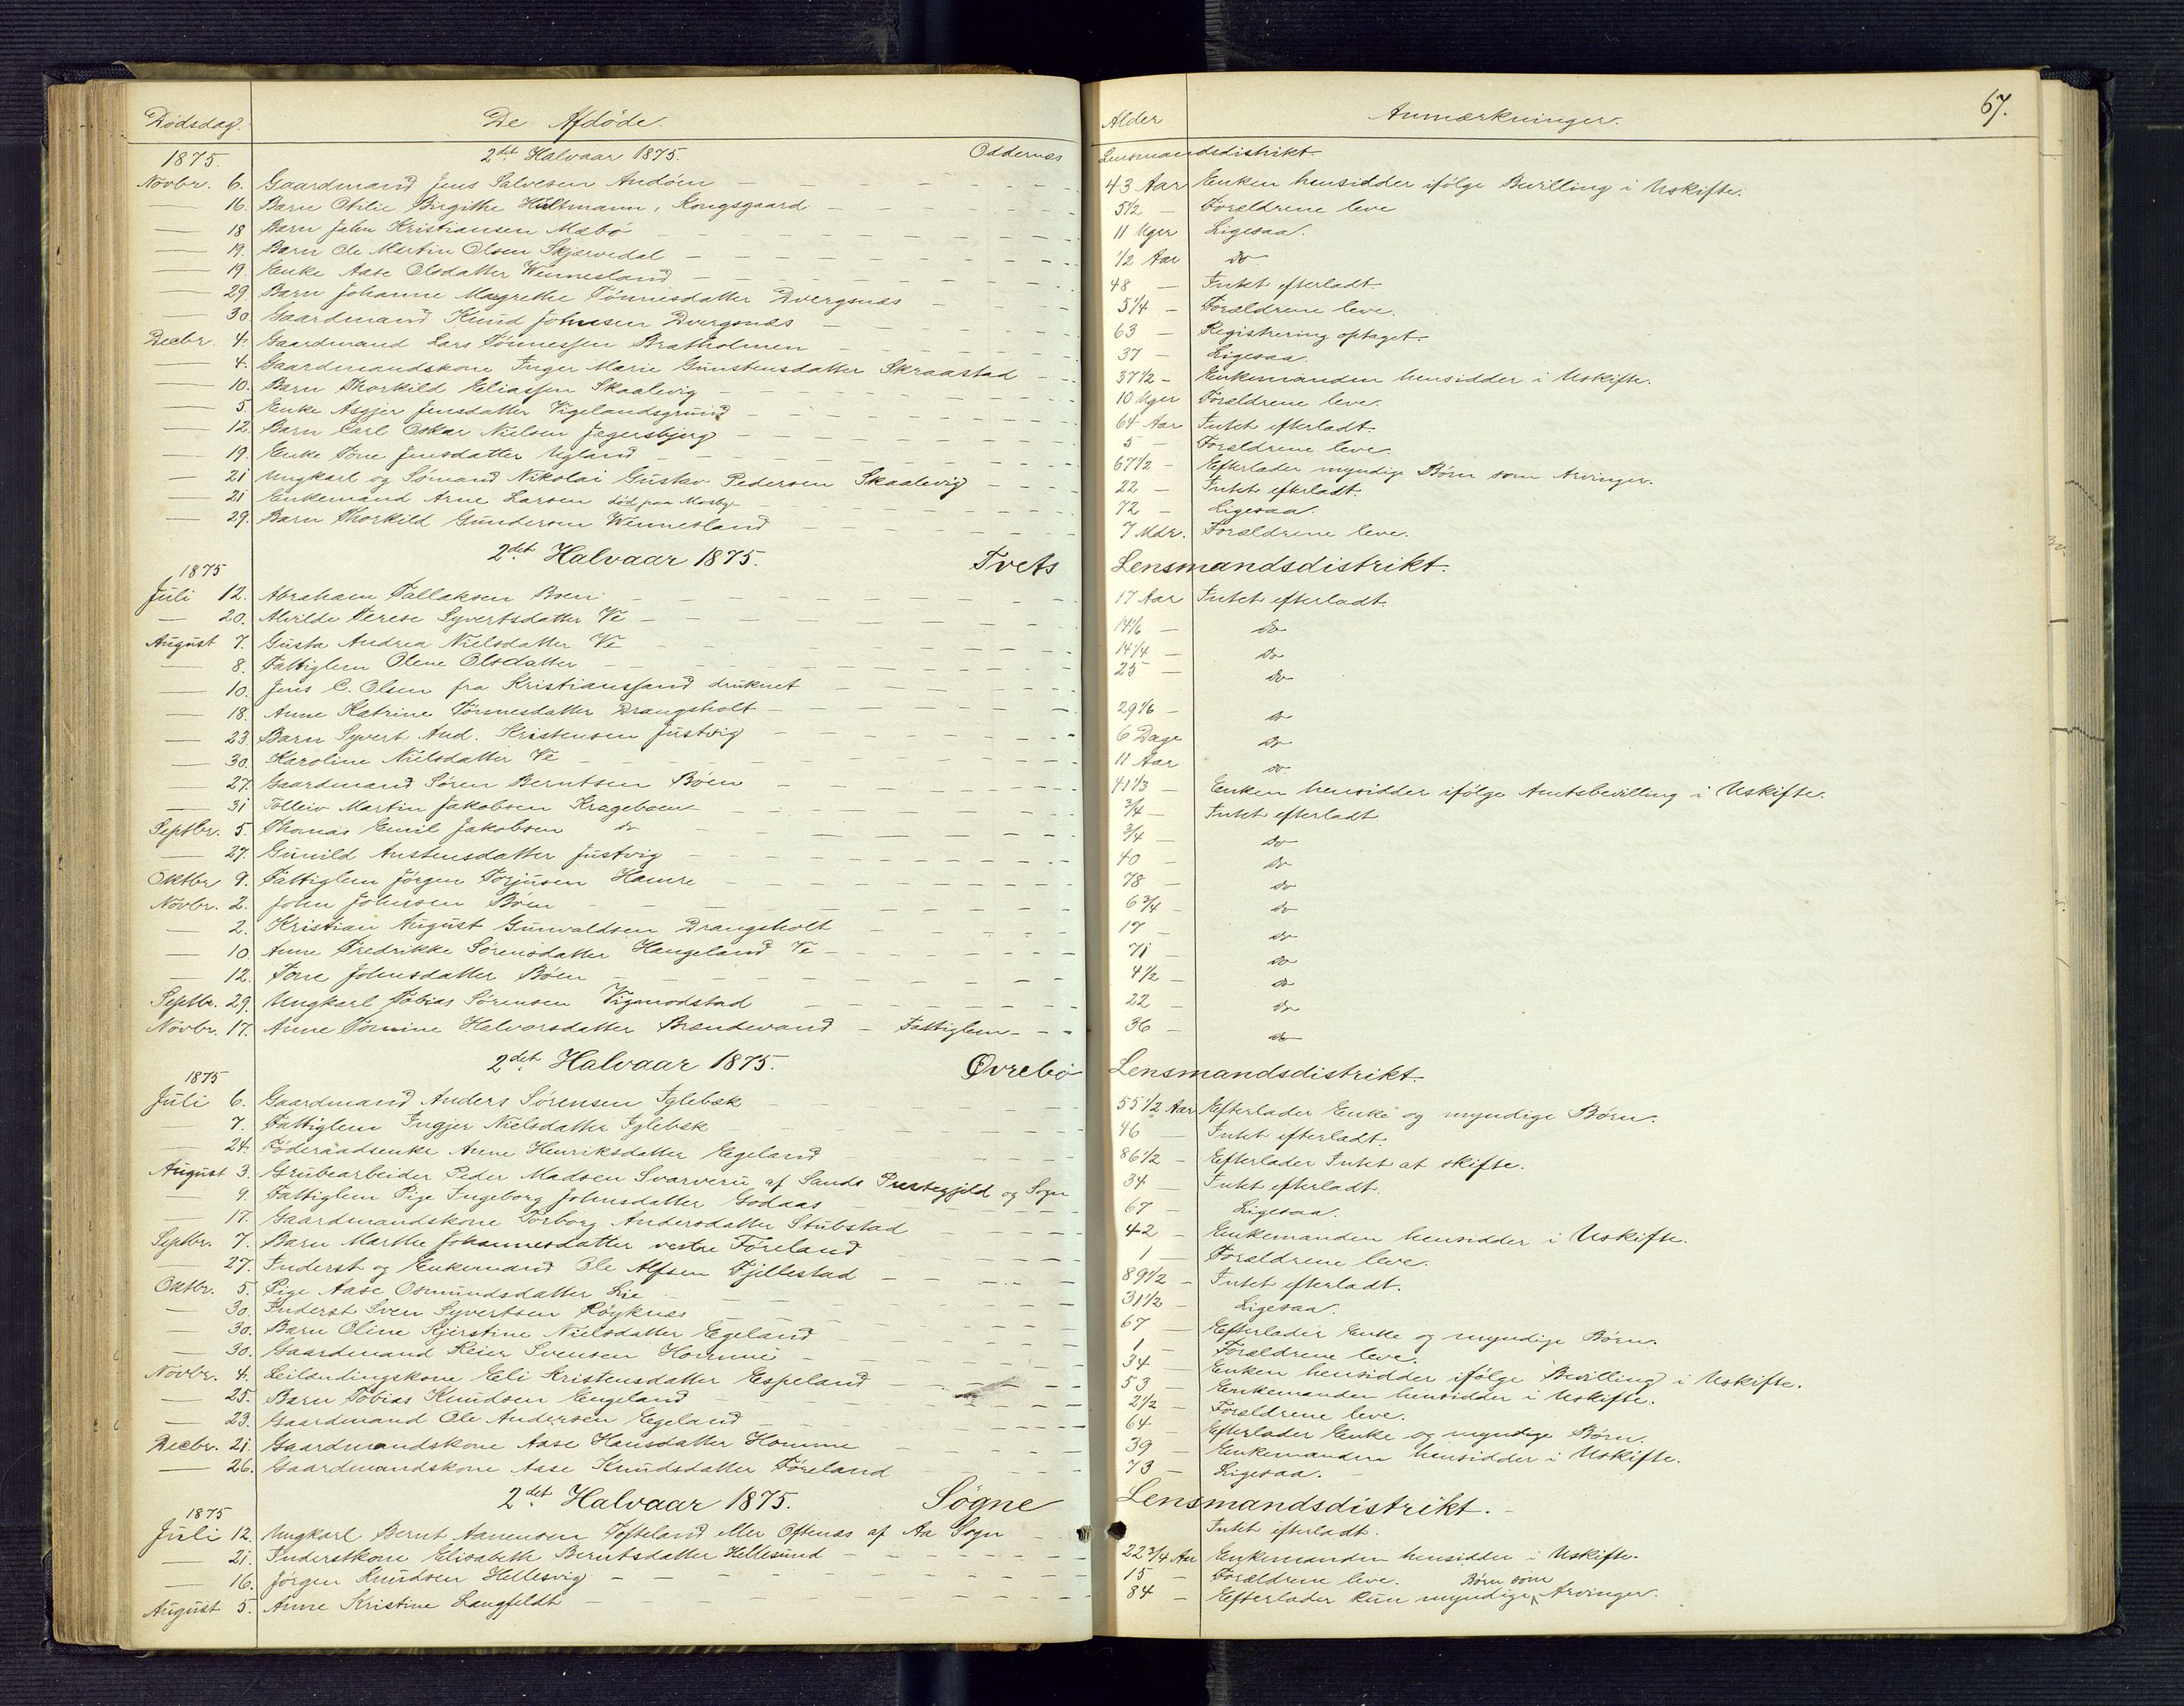 Dødsdag. De Afdøde. Alder Anmærkninger. 67.
1875. 2det Halvaar 1875. Oddernes Lensmandsdistrikt.
Novbr. 6. Gaardmand Jens Salvesen Andøen 43 Aar Enken hensidder ifølge Bevilling i Uskifte.
16. Barn Otilie Birgithe Hültmann, Kongsgaard 5 1/2 Forældrene leve
18 Barn John Kristiansen Mæbø 11 Uger Ligesaa.
19. Barn Ole Martin Olsen Skjærvedal 1/2 Aar do
19. Enke Aase Olsdatter Wennesland 48 Intet efterladt
29. Barn Johanne Magrethe Tønnesdatter Dvergsnæs 5 1/4 Forældrene leve.
30 Gaardmand Knud Johnsen Dvergsnæs 63 Registrering optaget.
Decbr. 4. Gaardmand Lars Tønnessen Bratholmen 37 Ligesaa.
4. Gaardmandskone Inger Marie Gunstensdatter Skraastad 37 1/2 Enkemanden hensidder i Uskifte.
10. Barn Thorkild Eliassen Skaalevig 10 Uger Forældrene leve.
5. Enke Asgjer Jensdatter Vigelandsgrund 64 Aar Intet efterladt.
12. Barn Carl Oskar Nielsen Jegersbjerg 5 Forældrene leve.
19. Enke Tone Jensdatter Ugland 67 1/2 Efterlader myndige Børn som Arvinger.
21 Ungkarl og Sømand Nikolai Gustav Pedersen Skaalevig 22 Intet efterladt.
21 Enkemand Arne Larsen død paa Mosby 72 Ligesaa.
29. Barn Thorkild Gundersen Wennesland 7 Mdr. Forældrene leve.
1875 2det Halvaar 1875. Tvets Lensmandsdistrikt.
Juli 12. Abraham Tallaksen Boen 17 Aar Intet efterladt.
20. Alvilde Terese Syvertsdatter Ve 14 1/6 do
August 7. Gusta Andrea Nielsdatter Ve 14 1/4 do
8. Fattiglem Olene Olsdatter 25 do
10. Jens C. Olsen fra Kristianssand druknet
18. Anne Katrine Tønnesdatter Drangsholt 29 1/6 do
23. Barn Syvert And. Kristensen Justvig 6 Dage do
30. Karoline Nielsdatter Ve 11 Aar do
27. Gaardmand Søren Berntsen Bøen 41 1/3 Enken hensidder ifølge Amtsbevilling i Uskifte.
31 Tolleiv Martin Jakobsen Krageboen 3/4 Intet efterladt
Septbr. 5. Thomas Emil Jakobsen do 3/4 do
27. Gunild Austensdatter Justvig 40 do
Oktbr 9. Fattiglem Jørgen Torjusen Hamre 78 do
Novbr. 2. John Johnsen Bøen 6 3/4 do
2. Kristian August Gunvaldsen Drangsholt 17 do
10. Anne Fredrikke Sørensdatter Haugeland Ve 71 do
12. Tone Johnsdatter Bøen 4 1/2 do
Septbr. 29. Ungkarl Tobias Sørensen Vigmodstad 22 do
Novbr. 17. Anne Tomine Halvorsdatter Brændevand Fattiglem 36 do
1875 2det Halvaar 1875. Øvrebø Lensmandsdistrikt.
Juli 6. Gaardmand Anders Sørensen Iglebæk 55 1/2 Aar Efterlader Enke og myndige Børn.
7. Fattiglem Ingjer Nielsdatter Iglebæk 46 Intet efterladt.
24. Føderaadsenke Anne Henriksdatter Egeland 86 1/2 Efterlader Intet at skifte.
August 3. Grubearbeider Peder Madsen Svarveru af Sands Præstegjeld og Sogn 34 Intet efterladt.
9. Fattiglem Pige Ingeborg Johnsdatter Godaas 67 Ligesaa.
17. Gaardmandskone Torborg Andersdatter Stubstad 42 Enkemanden hensidder i Uskifte.
Septbr. 7. Barn Marthe Johannesdatter vestre Føreland 1 Forældrene leve.
27. Inderst og Enkemand Ole Alfsen Fjellestad 89 1/2 Intet efterladt.
Oktbr. 5. Pige Aase Osmundsdatter Lie 31 1/2 Ligesaa.
30. Inderst Sven Syvertsen Røyknes 67 Efterlader Enke og myndige Børn.
30. Barn Oline Kjerstine Nielsdatter Egeland 1 Forældrene leve.
30. Gaardmand Reier Svensen Homme 34 Enken hensidder ifølge Bevilling i Uskifte.
Novbr. 4. Leilændingskone Eli Kristensdatter Espeland 53 Enkemanden hensidder i Uskifte.
25. Barn Tobias Knudsen Engeland 2 1/2 Forældrene leve.
23. Gaardmand Ole Andersen Egeland 64 Efterlader Enke og myndige Børn.
Decbr. 21. Gaardmandskone Aase Hansdatter Homme 39 Enkemanden hensidder i Uskifte.
26. Gaardmandskone Aase Knudsdatter Føreland 73 Ligesaa.
1875 2det Halvaar 1875. Søgne Lensmandsdistrikt.
Juli 12. Ungkarl Bernt Aanensen Tofteland eller Oftenæs af Aa Sogn Intet efterladt.
21. Inderstkone Elisabeth Berntsdatter Hellesund 22 3/4 Aar Enkemanden hensidder i Uskifte.
16. Jørgen Knudsen Hellesvig 15 Forældrene leve.
August 5. Anne Kristine Langfeldt 84 Efterlader kun myndige Børn som Arvinger.